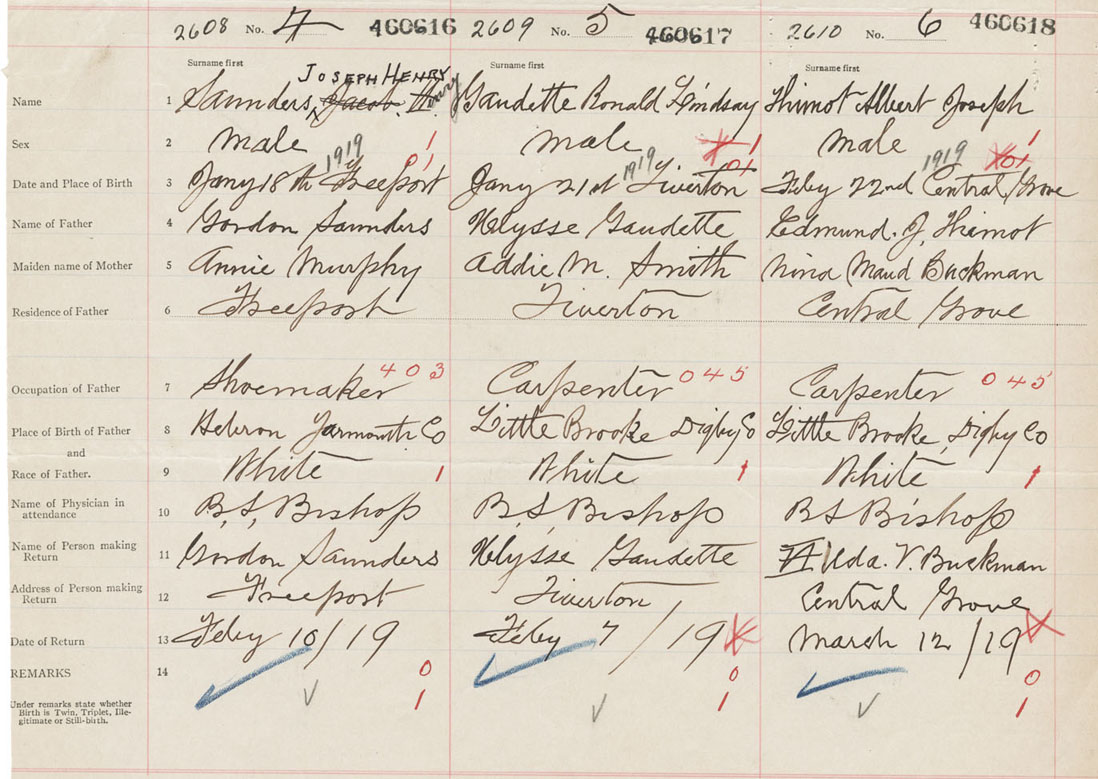 2608 No. 4 460616 2609 No. 5 460617 2610 No. 6 460618
Surname first Surname first Surname first
JOSEPH HENRY
Name 1 Saunders, Jacob. H. Henry Gaudette Ronald Lindsay Thimot Albert Joseph
Sex 2 male 1 male 1 male 1
1919 01 1919 01 1919 01
Date and Place of Birth 3 Jany 18th Freeport Jany 21st Tiverton Feby 22nd Central Grove
Name of Father 4 Gordon Saunders Ulysse Gaudette Edmund. J. Thimot
Maiden name of Mother 5 Annie Murphy Addie M. Smith Nina Maud Buckman
Residence of Father 6 Freeport Tiverton Central Grove
Occupation of Father 7 Shoemaker 403 Carpenter 045 Carpenter 045
Place of Birth of Father 8 Hebron Yarmouth Co Little Brooke Digby Co Little Brooke, Digby Co
and
Race of Father. 9 White 1 White 1 White 1
Name of Physician in
attendance 10 B. S. Bishop B. S. Bishop B S Bishop
Name of Person making
Return 11 Gordon Saunders Ulysse Gaudette Alda. V. Buckman
Address of Person making
Return 12 Freeport Tiverton Central Grove
Date of Return 13 Feby 10/19 Feby 7/19 March 12/19
REMARKS 14 0 0 0
Under remarks state whether 1 1 1
Birth is Twin, Triplet, Ille-
gitimate or Still-birth.